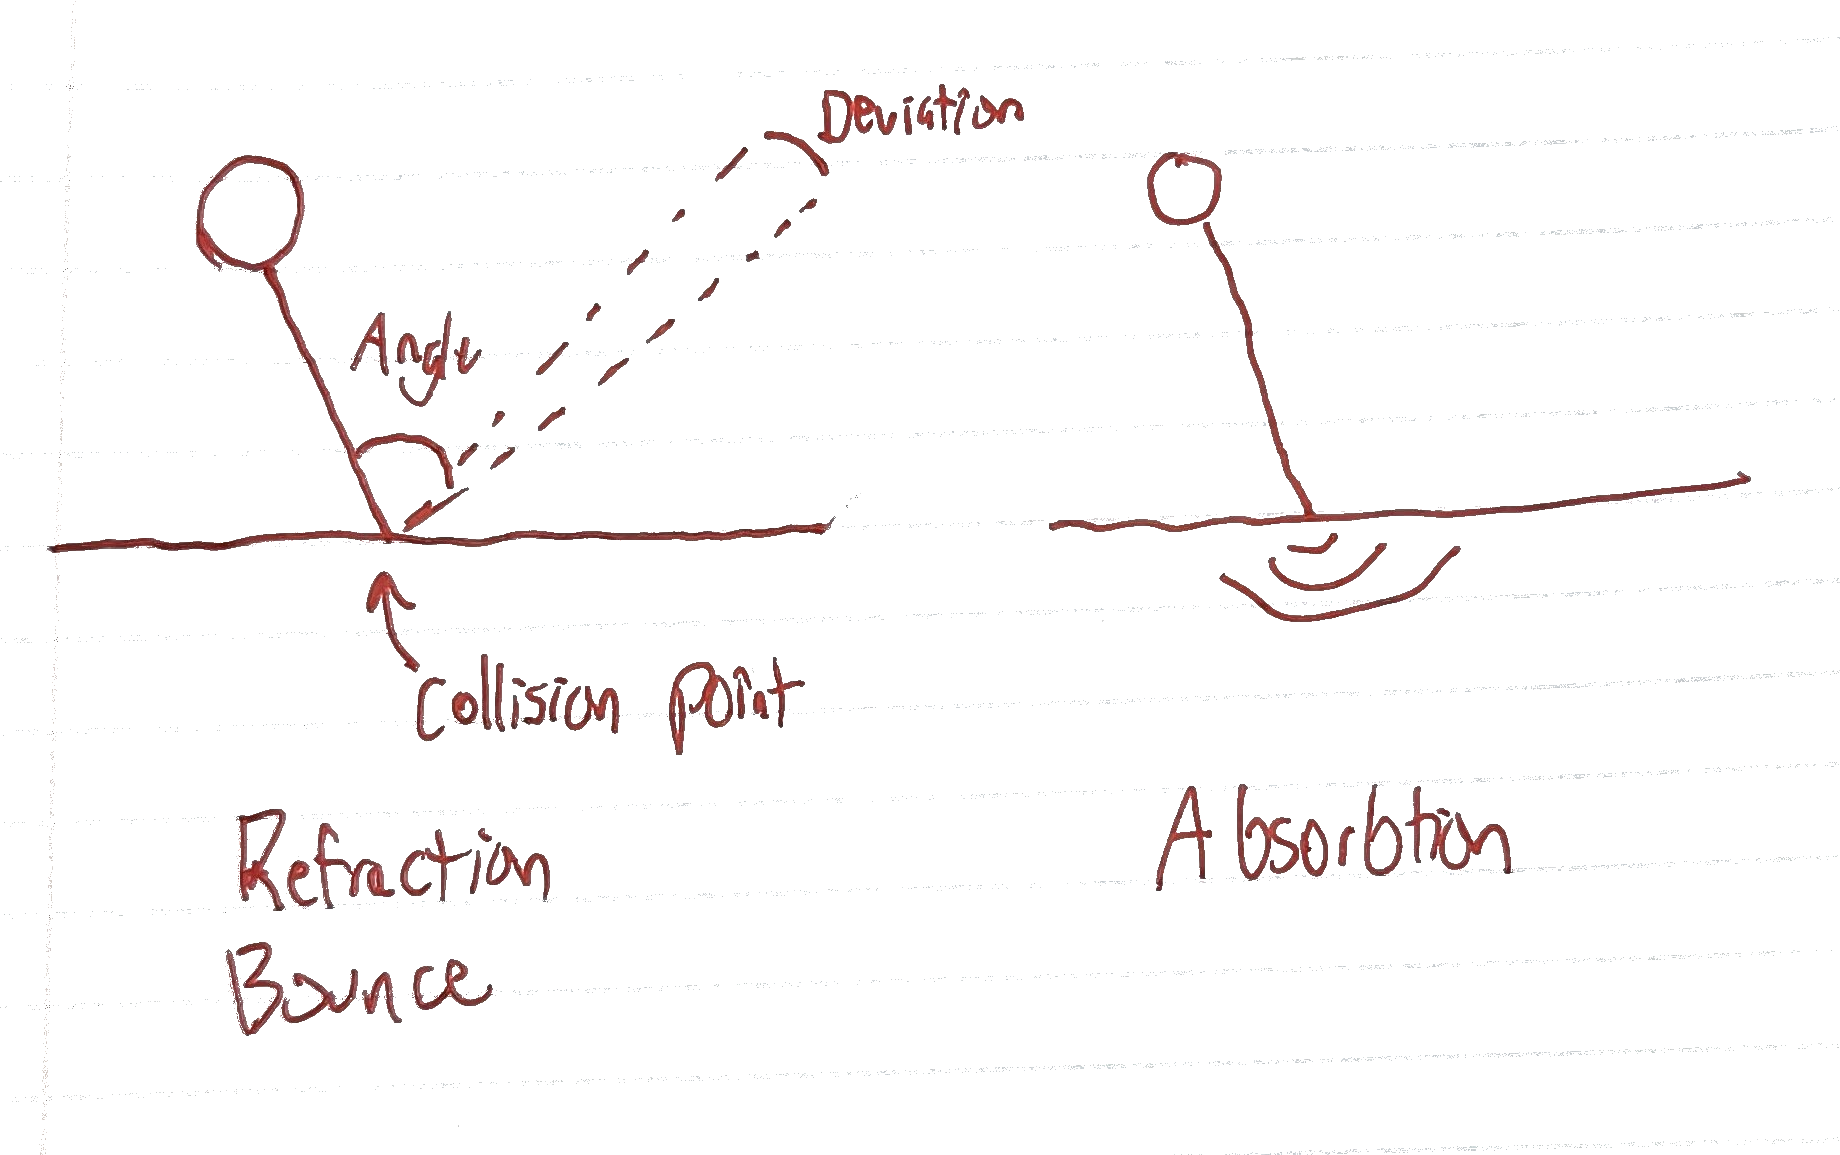 Deviation
Angle
Collision point
Refraction
Bounce
Absorbtion